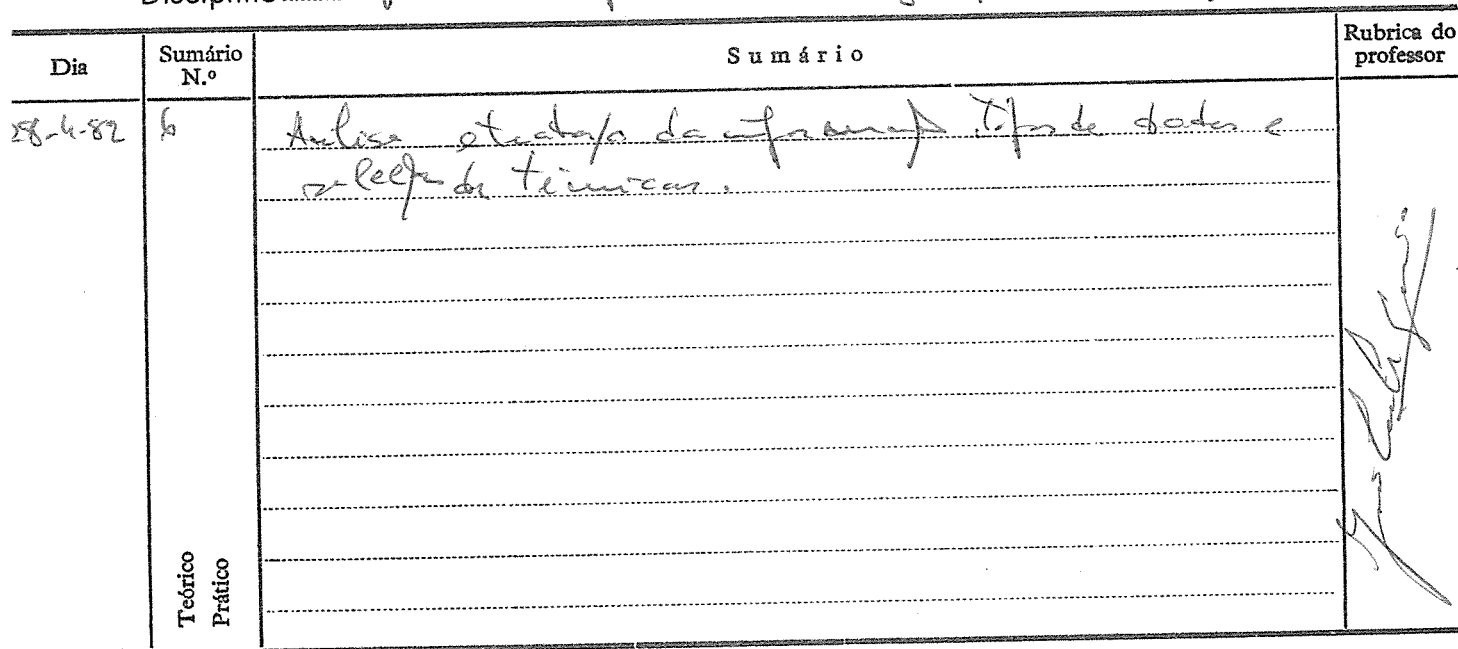 Dia
Sumário N.º
Sumário
Rubrica do professor
28-4-82
6
Análise e tratamento da informação. Tipos de dados e
selecção de técnicas.
Teórico
Prático